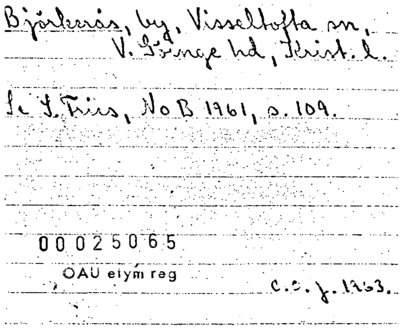 Björkerås, by, Visseltofta sn,
V. Göinge hd, Krist. l.
Se S. Friis, NoB 1961, s. 109.
00025065
OAU etym reg
C.E.J. 1963.